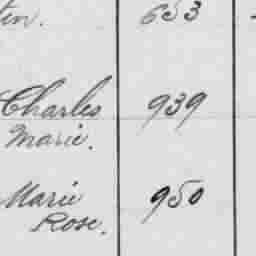 tin. 653
Charles 939
Marie.
Marie 950
Rose.